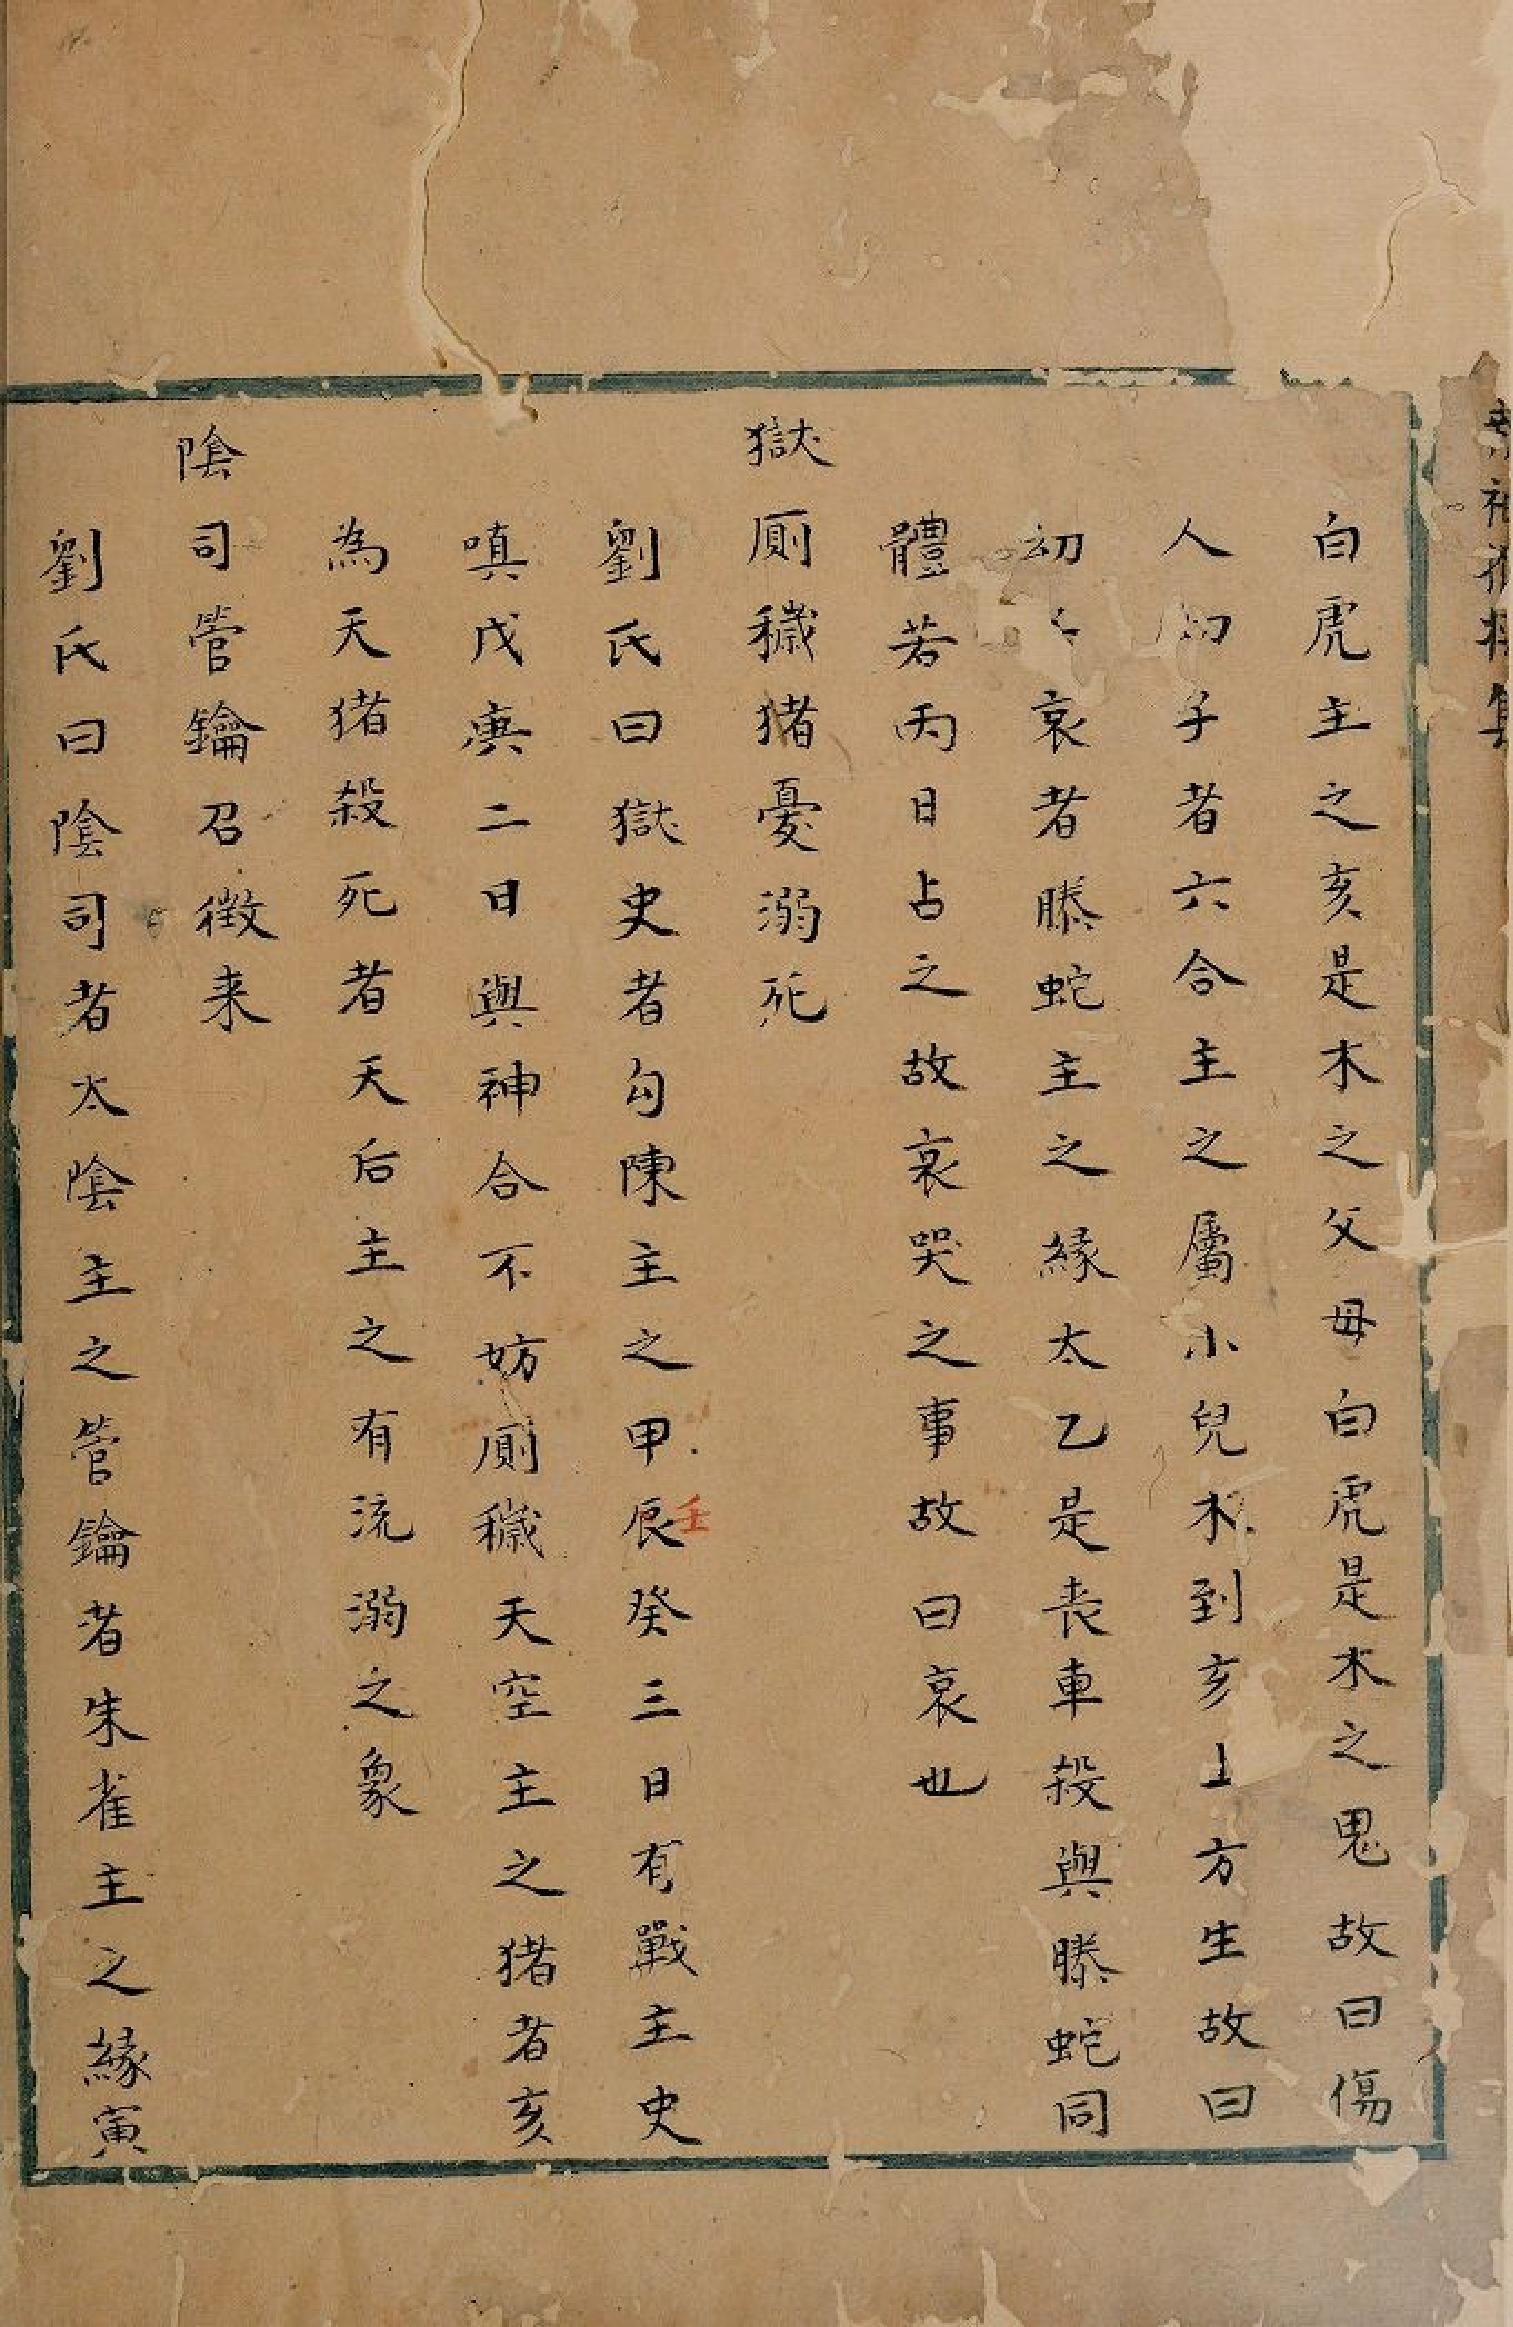 白虎主之亥是木之父母白虎是木之鬼故曰傷
人幼子者六合主之屬小兒木到亥上方生故曰
初哀者螣蛇主之緣太乙是喪車殺與螣蛇同
體若丙日占之故哀哭之事故曰哀也
獄厠穢猪憂溺死
劉氏曰獄史者勾陳主之甲辰壬癸三日有戰主史
嗔戊庚二日與神合不妨厠穢天空主之猪者亥
為天猪殺死者天后主之有流溺之象
陰司管鑰召徵来
劉氏曰陰司者太陰主之管鑰者朱雀主之緣寅